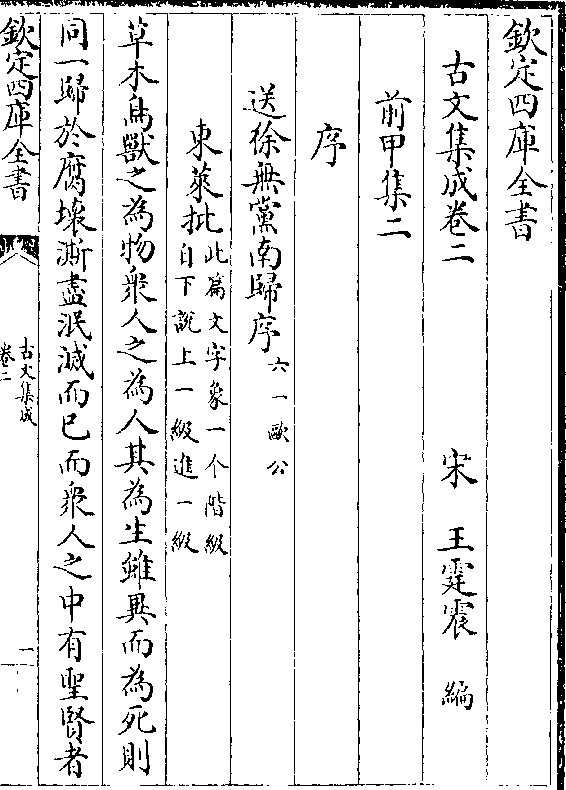 欽定四庫全書
古文集成卷二
宋 王霆震 編
前甲集二
序
送徐無黨南歸序 六一歐公
東萊批 此篇文字象一个階級
自下說上一級進一級
草木鳥獸之為物衆人之為人其為生雖異而為死則
同一歸於腐壞澌盡泯滅而已而衆人之中有聖賢者
欽定四庫全書
古文集成
卷二
一